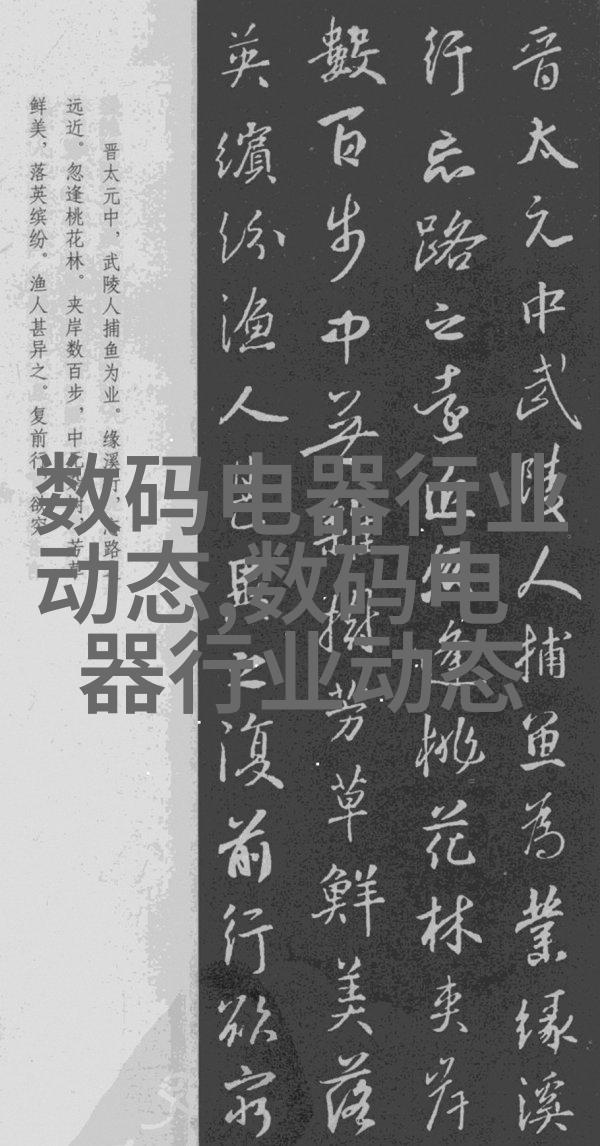 晋太元中武陵人捕鱼为業缘溪
行忘路之遠近忽逢桃花林夹岸
數百步中無雜樹芳草鮮美落
英繽纷漁人甚異之復前行欲窮
晋太元中，武陵人捕鱼为业。缘溪行，忘路
远近。忽逢桃花林。夹岸数百步，中无杂树，芳草
鲜美，落英缤纷。渔人甚异之。复前行，欲穷
数码电器行业
动态,数码电
器行业动态